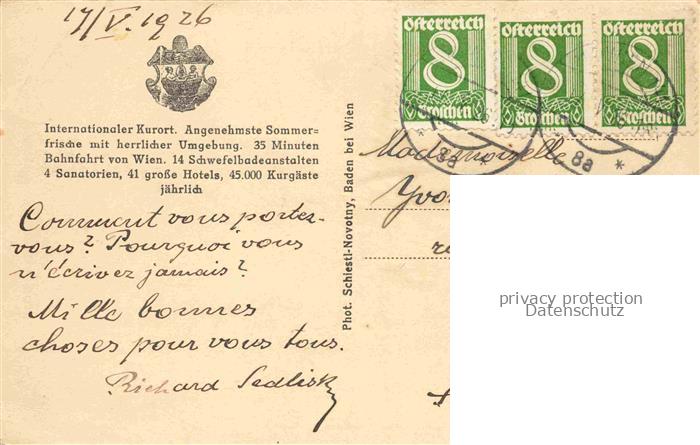 17/V. 1926
Österreich
8
Groschen
Österreich
8
Groschen
Österreich
8
Groschen
8a *
8a *
Internationaler Kurort. Angenehmste Sommer=
frische mit herrlicher Umgebung. 35 Minuten
Bahnfahrt von Wien. 14 Schwefelbadeanstalten
4 Sanatorien, 41 große Hotels, 45.000 Kurgäste
jährlich
Comment vous portez-
vous? Pourquoi vous
n'écrivez jamais?
Mille bonnes
choses pour vous tous.
Richard Sedlisky
Phot. Schiestl-Novotny, Baden bei Wien
Mademoiselle
privacy protection
Datenschutz